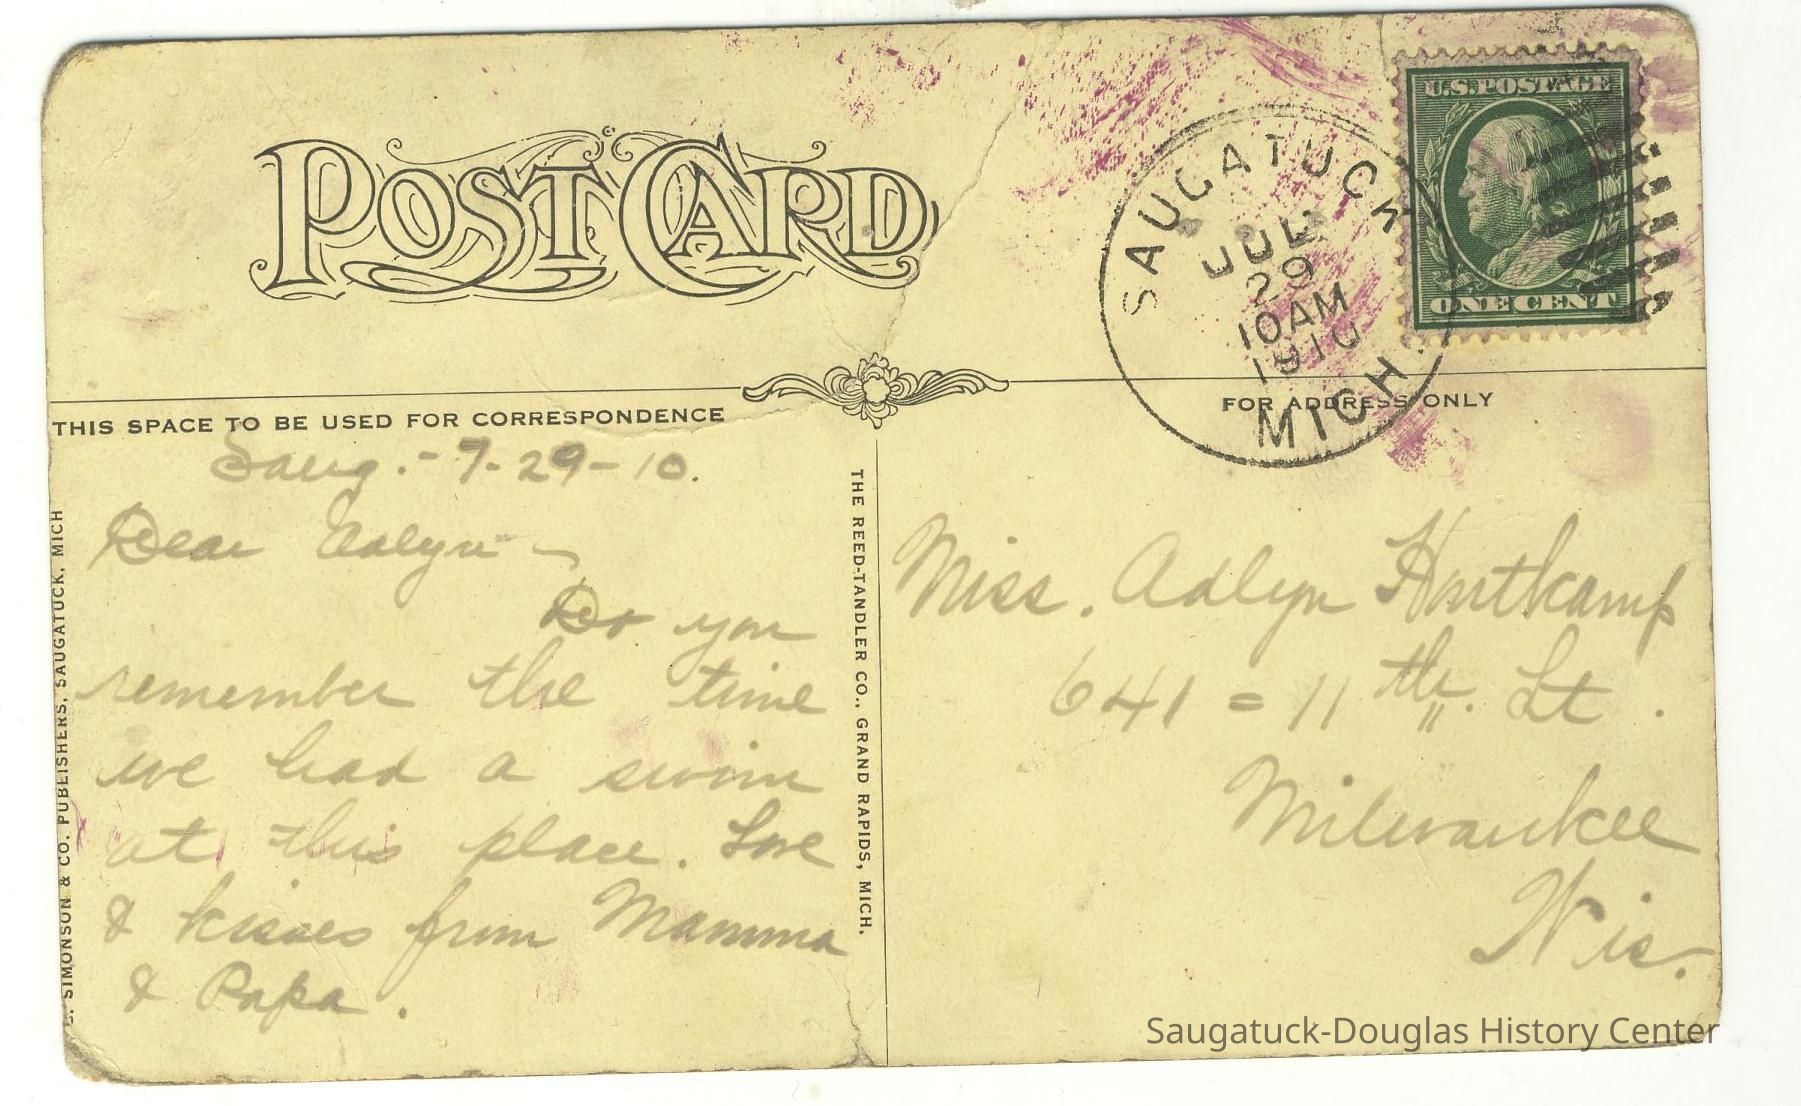 POST CARD
SAUGATUCK
JUL
29
10AM
1910
MICH.
U.S. POSTAGE
ONE CENT
THIS SPACE TO BE USED FOR CORRESPONDENCE
FOR ADDRESS ONLY
Saug. - 7-29-10.
Dear Adlyn -
Do you
remember the time
we had a swim
at this place. Love
& kisses from Mamma
& Papa.
SIMONSON & CO. PUBLISHERS, SAUGATUCK, MICH
THE REED-TANDLER CO., GRAND RAPIDS, MICH.
Miss. Adlyn
641 = 11th. St.
Milwaukee
Wis.
Saugatuck-Douglas History Center